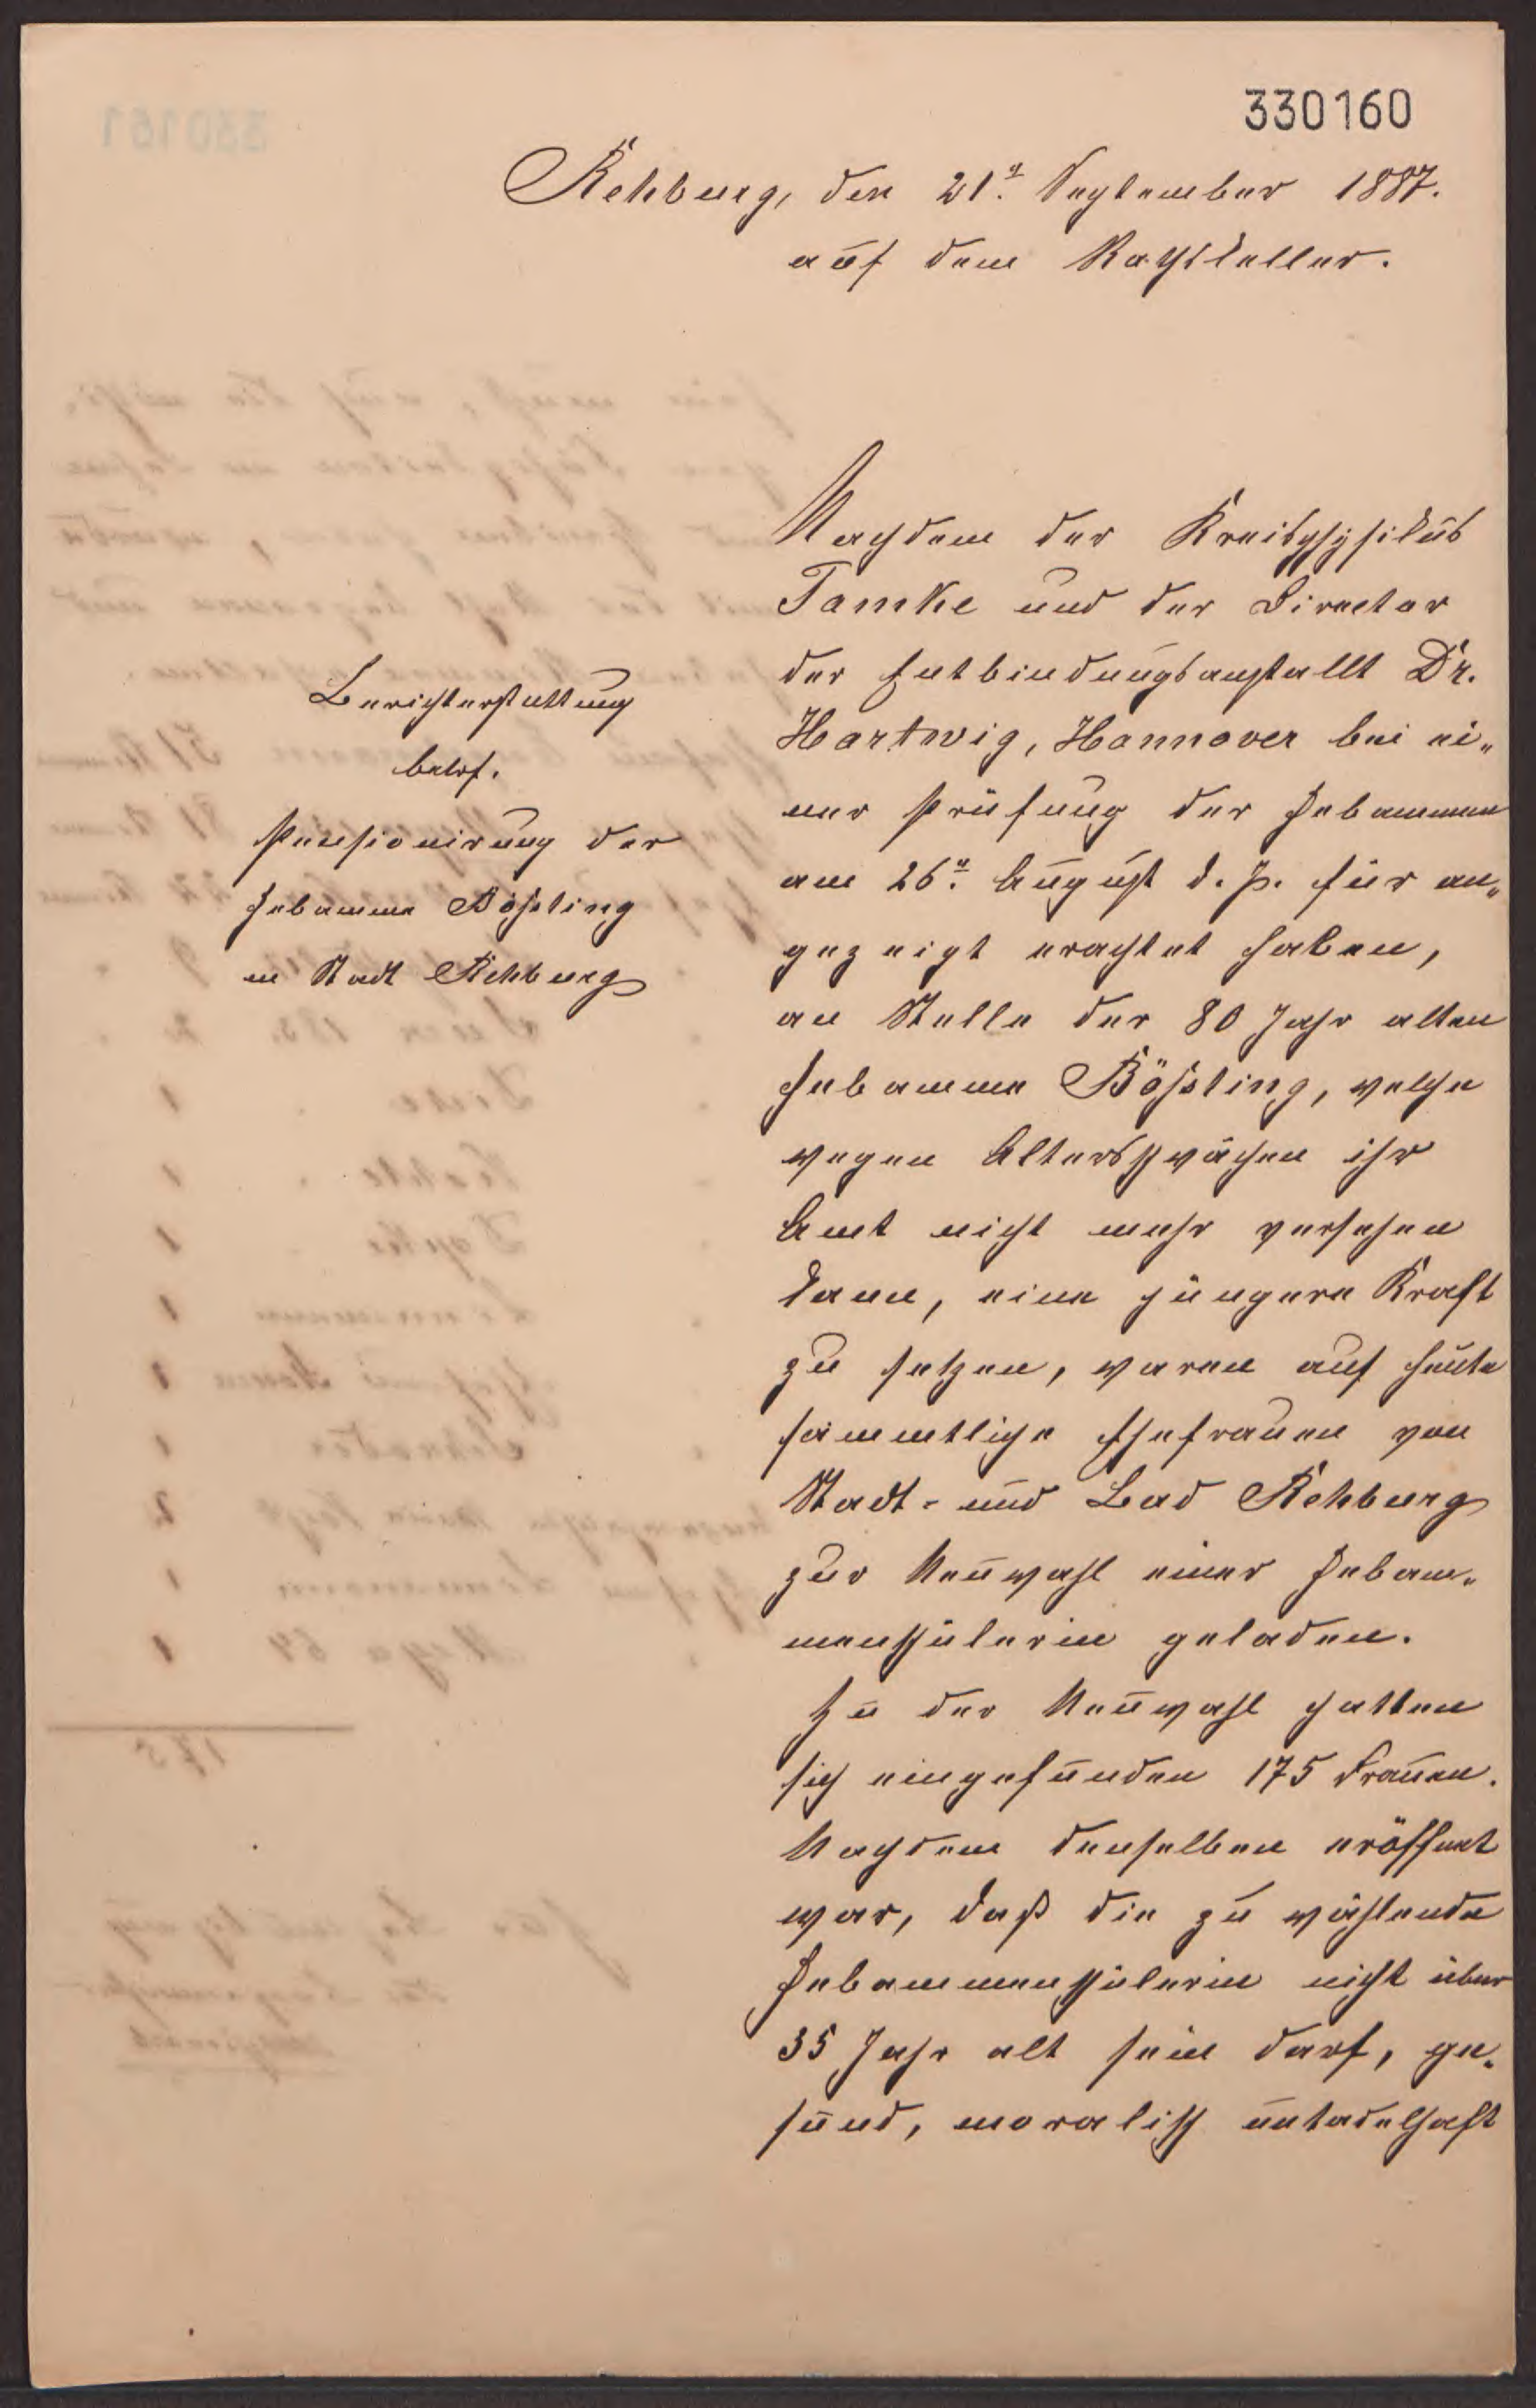 330160
Rehburg, den 21t. September 1887.
auf dem Rathskeller.
Berichterstattung
betrf.
Pensionirung der
Hebamme Bößling
in Stadt Rehburg
Nachdem der Kreisphysikus
Tamke und der Director
der Entbindungsanstallt Dr.
Hartwig, Hannover bei ei-
ner Prüfung der Hebammen
am 26t. August d. J. für an-
gezeigt erachtet haben,
an Stelle der 80 Jahr alten
Hebamme Bößling, welche
wegen Altersschwächen ihr
Amt nicht mehr versehen
kann, eine jüngere Kraft
zu setzen, waren auf heute
sämmtliche Ehefrauen von
Stadt- und Bad Rehburg
zur Neuwahl einer Hebam-
menschülerin geladen.
Zu der Neuwahl hatten
sich eingefunden 175 Frauen.
Nachdem denselben eröffnet
war, daß die zu wählende
Hebammenschülerin nicht über
35 Jahr alt sein darf, ge-
sund, moralisch untadelhaft